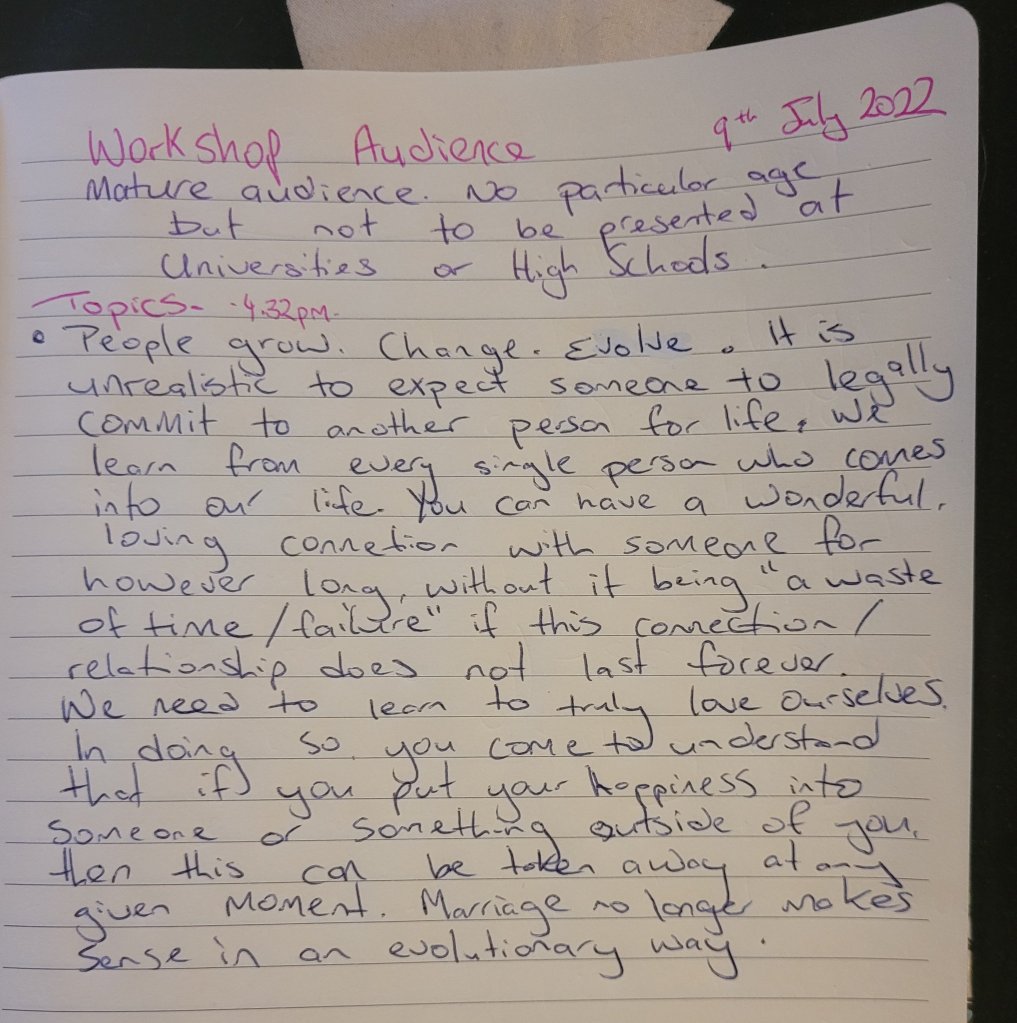 Workshop Audience 9th July 2022
Mature audience. No particular age
but not to be presented at
Universities or High Schools.
Topics- -4.32pm-
• People grow. Change. Evolve. It is
unrealistic to expect someone to legally
commit to another person for life. We
learn from every single person who comes
into our life. You can have a wonderful,
loving connetion with someone for
however long, without it being "a waste
of time/failure" if this connection/
relationship does not last forever.
We need to learn to truly love ourselves.
In doing so you come to understand
that if you put your happiness into
someone or something outside of you,
then this can be taken away at any
given moment. Marriage no longer makes
sense in an evolutionary way.